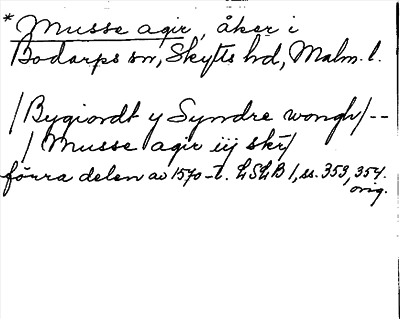 * Musse agir, åker i
Bodarps sn, Skytts hd, Malm. l.
/Bygiordt y Syndre wongh/--
/Musse agir iij skr/
förra delen av 1570-t. LSLB 1, ss. 353, 354.
orig.